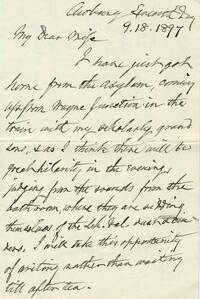 Seventh Day
9.18.1897
My Dear Wife
I have just got
home from the asylum, coming
up from Wayne Junction in the
train with my scholarly, grand
sons, & as I think there will be
great hilarity in the evening,
judging from the sounds from the
bathroom, where they are
themselves of the
I will take this opportunity
of writing rather than waiting
till after tea.